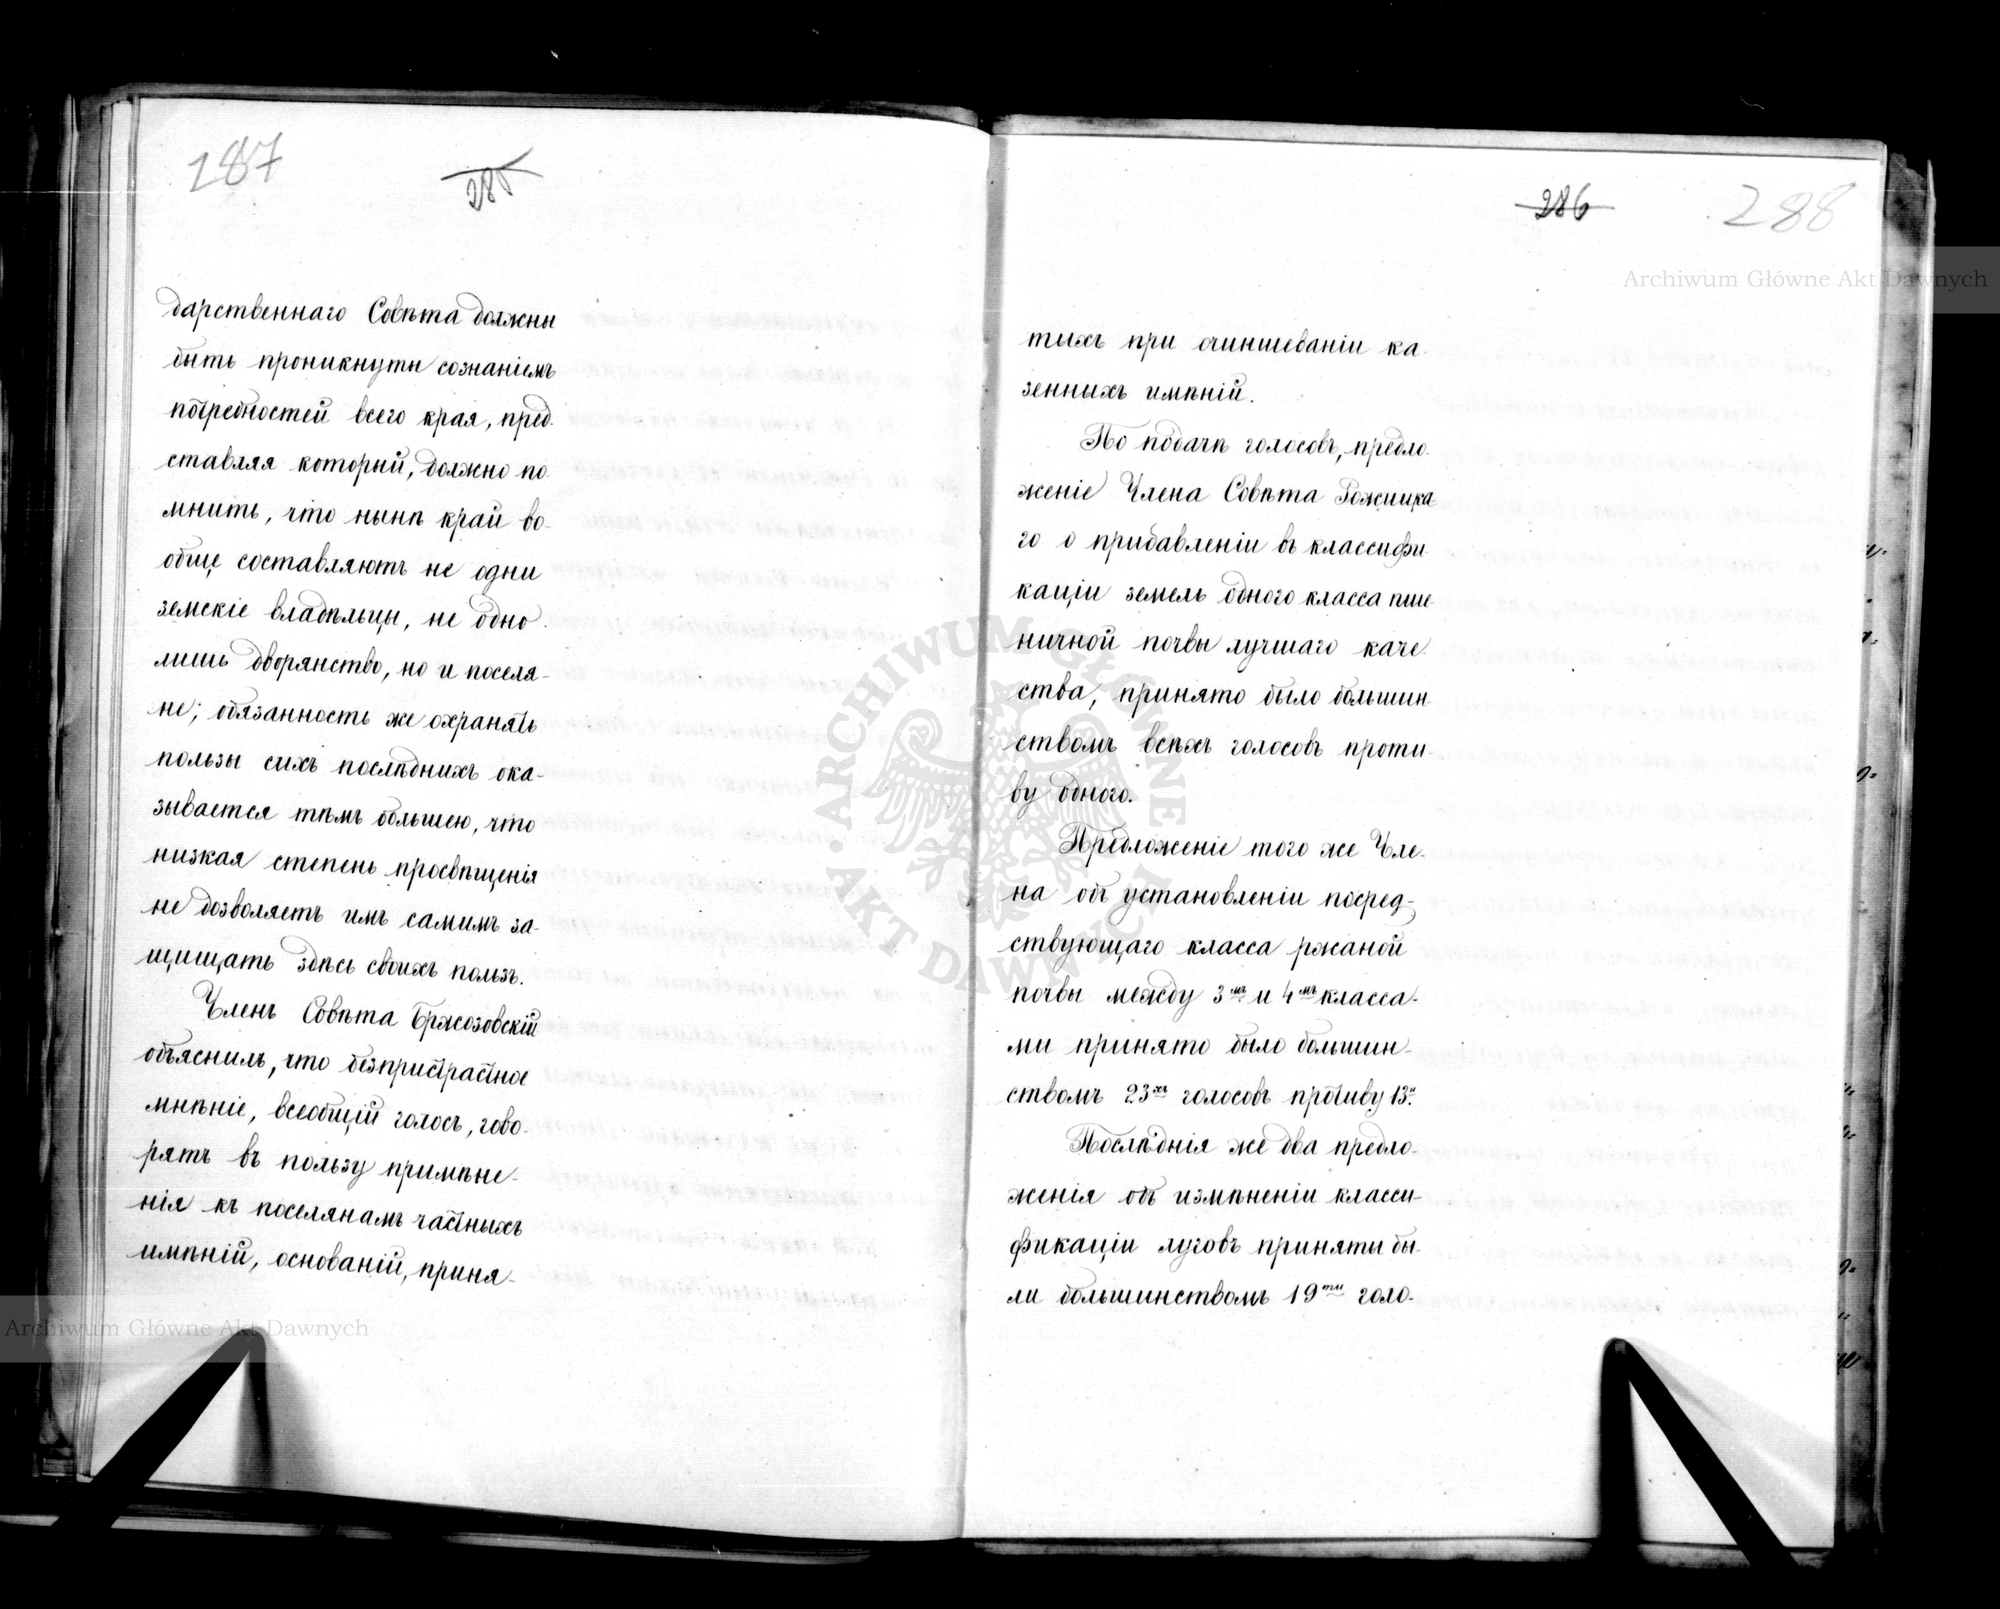 287
285
дарственнаго Совѣта должны
быть проникнуты сознаніемъ
потребностей всего края, пред-
ставляя который, должно по-
мнить, что нынѣ край во-
обще составляютъ не одни
земскіе владѣльцы, не одно
лишь дворянство, но и поселя-
не; обязанность же охранять
пользы сихъ послѣднихъ ока-
зывается тѣмъ большею, что
низкая степень просвѣщенія
не дозволяетъ имъ самимъ за-
щищать здѣсь своихъ пользъ.
Членъ Совѣта Бржозовскій
объяснилъ, что безпристрастное
мнѣніе, всеобщій голосъ, гово-
рятъ въ пользу примѣне-
нія къ поселянамъ частныхъ
имѣній, основаній, приня-
286
288
тыхъ при очиншеваніи ка-
зенныхъ имѣній.
По подачѣ голосовъ, предло-
женіе Члена Совѣта Рожнецка-
го о прибавленіи въ классифи-
каціи земель одного класса пше-
ничной почвы лучшаго каче-
ства, принято было большин-
ствомъ всѣхъ голосовъ проти-
ву одного.
Предложеніе того же Чле-
на объ установленіи посред-
ствующаго класса ржаной
почвы между 3мъ и 4мъ класса-
ми принято было большин-
ствомъ 23хъ голосовъ противу 13и.
Послѣднія же два предло-
женія объ измѣненіи класси-
фикаціи луговъ приняты бы-
ли большинствомъ 19ти голо-
Archiwum Główne Akt Dawnych
Archiwum Główne Akt Dawnych
ARCHIWUM GŁÓWNE AKT DAWNYCH